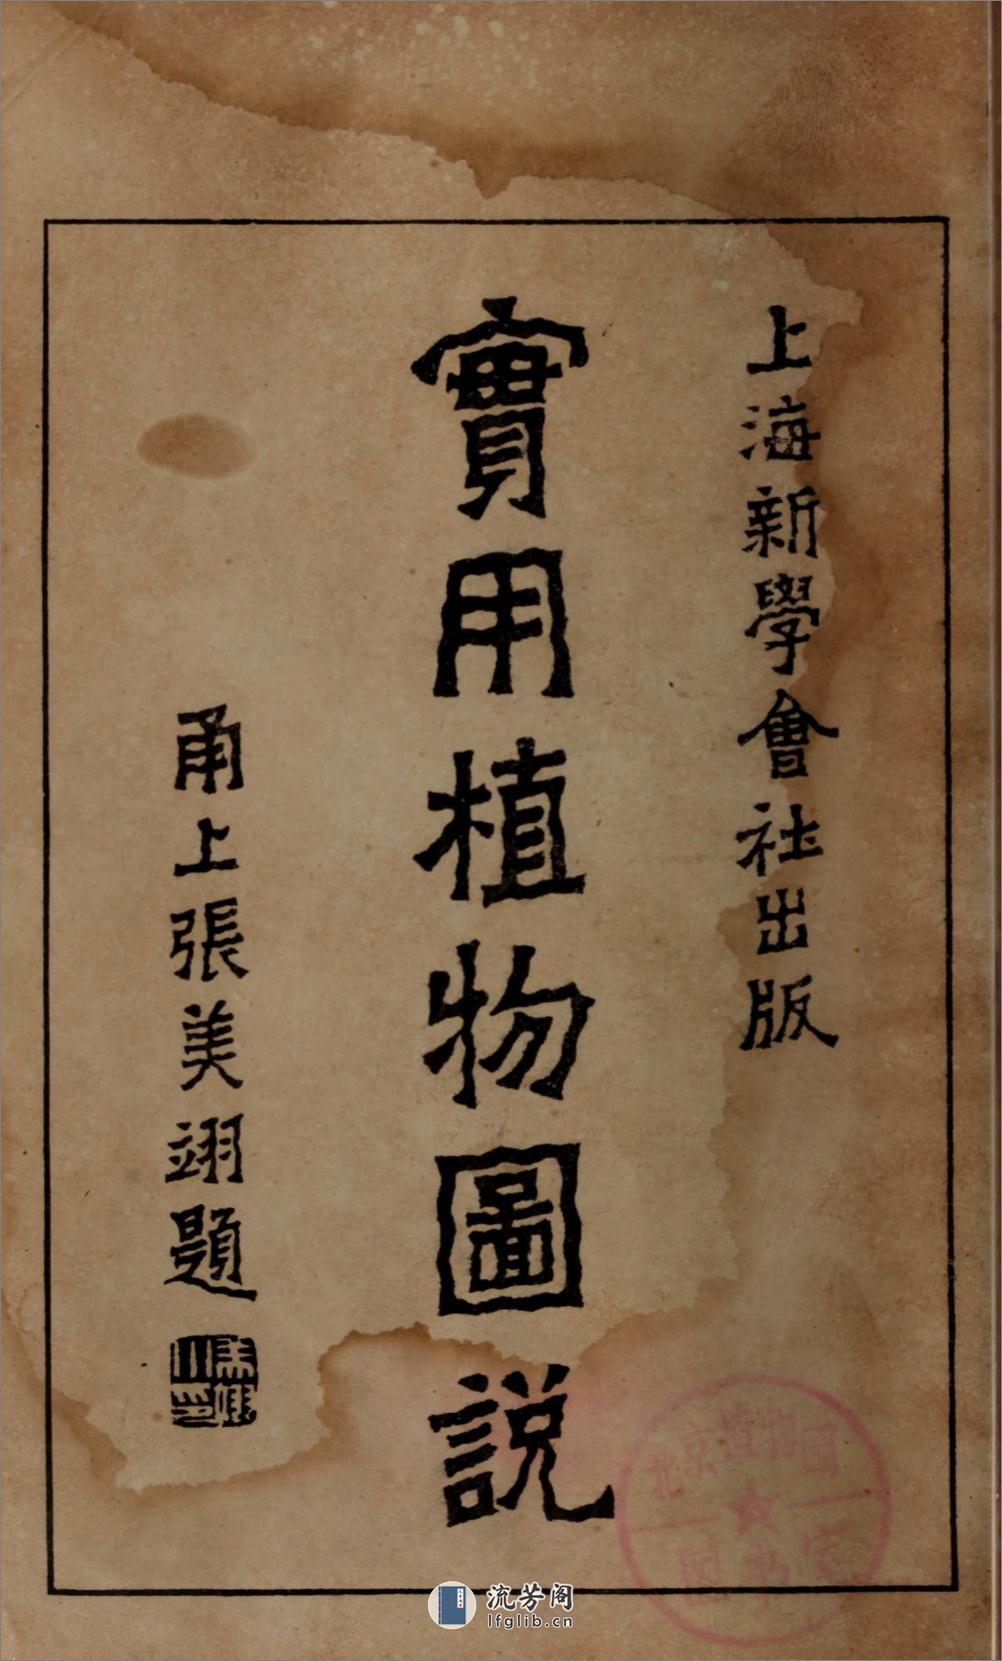 上海新學會社出版
實用植物圖說
甬上張美翊題
北京植物园
图书室
流芳阁
lfglib.cn